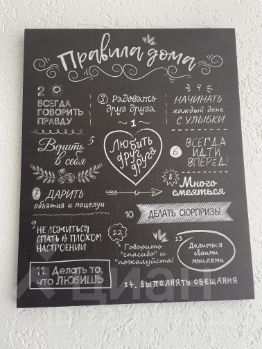 Правила дома
2
ВСЕГДА
ГОВОРИТЬ
ПРАВДУ
3 Радовать
друг друга
4
НАЧИНАТЬ
КАЖДЫЙ ДЕНЬ
С УЛЫБКИ
1
Любить
друг
друга
Верить
в себя
6
ВСЕГДА
ИДТИ
ВПЕРЕД!
7 ДАРИТЬ
объятия и поцелуи
8
Много
смеяться
9 НЕ ЛОЖИТЬСЯ
СПАТЬ В ПЛОХОМ
НАСТРОЕНИИ
10 ДЕЛАТЬ СЮРПРИЗЫ
11. Делать то,
что ЛЮБИШЬ
12
Говорить
"спасибо" и
"пожалуйста"
13
Делиться
своими
мыслями
14. ВЫПОЛНЯТЬ ОБЕЩАНИЯ
циан